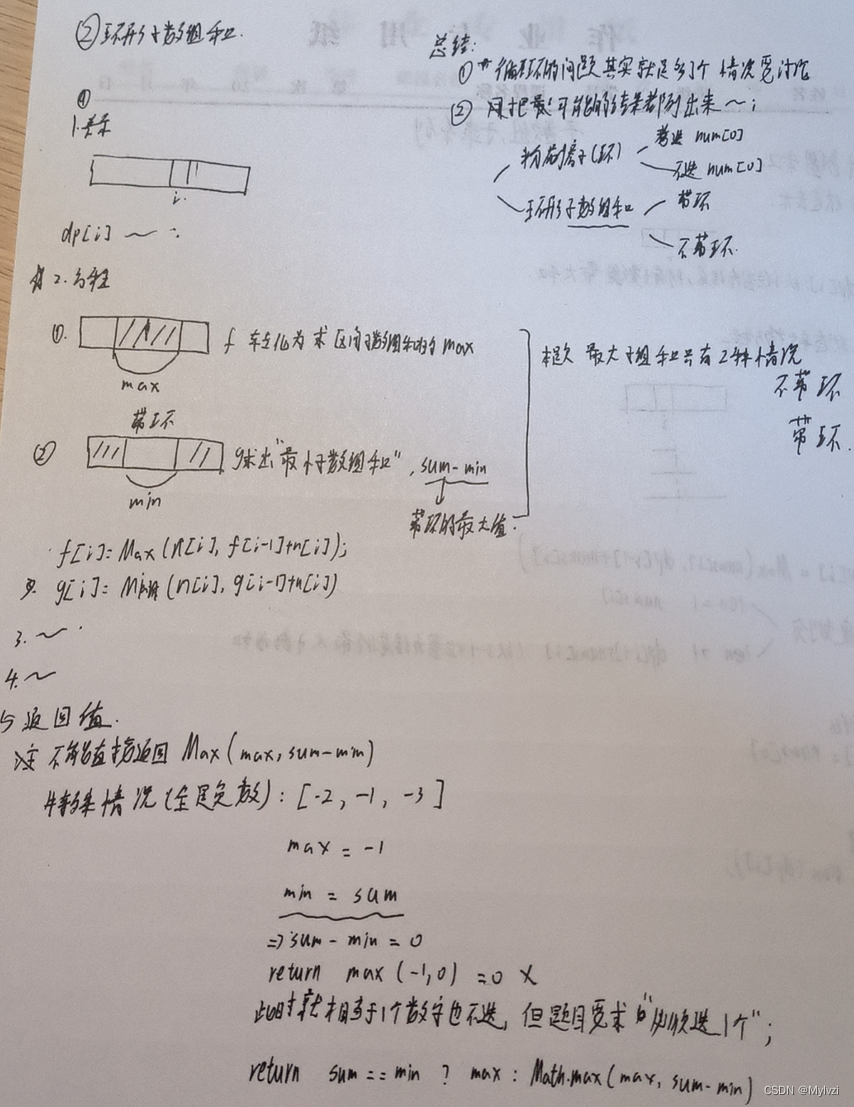 ②环形子数组和.
总结:
① "循环"的问题其实就是多了个 情况要讨论
② 可能的结果都列出来~;
粉刷房子(环)
考虑 num[0]
不选 num[0]
环形子数组和
带环
不带环.
①
1.表示
i.
dp[i] ~ ∵
2.方程
①. f 转化为 求 区间子数组和的 max
max
本题 最大子组和只有2种情况
不带环
带环.
带环
② g求出"最小子数组和", sum-min
min
带环的最大值.
f[i]= Max (n[i], f[i-1]+n[i]);
g[i]= Min (n[i], g[i-1]+n[i])
3. ~
4. ~
5 返回值.
注 不能直接返回 Max(max, sum-min)
特殊情况(全是负数): [-2, -1, -3]
max = -1
min = sum
=> sum - min = 0
return max (-1,0) = 0 X
此时就相当于1个数字也不选, 但题目要求"必须选1个";
return sum == min ? max : Math.max(max, sum-min)
CSDN @Mylvzi